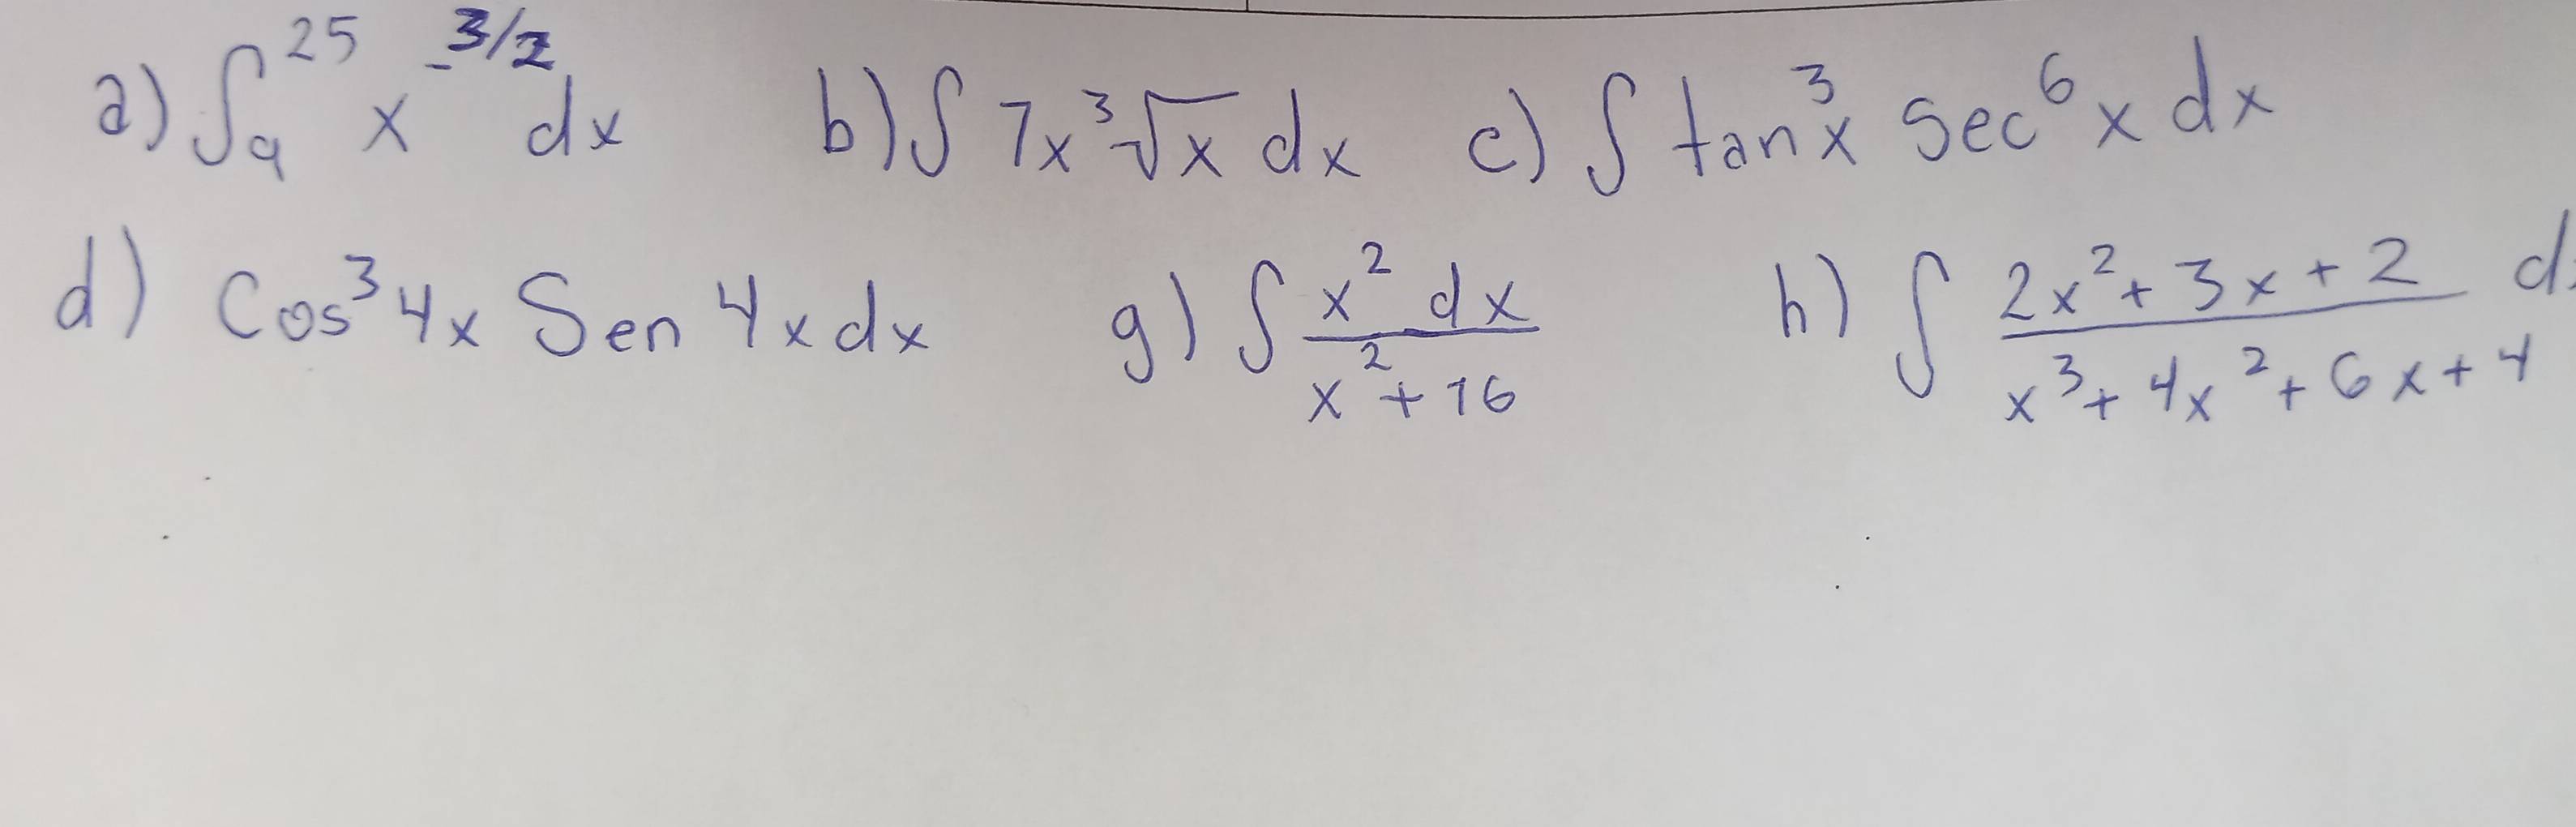 a) ∫₉²⁵ x^(-3/2) dx b) ∫ 7x ³√x dx c) ∫ tan³x sec⁶x dx
d) Cos³4x Sen 4x dx g) ∫ x² dx / (x² + 16) h) ∫ (2x² + 3x + 2) / (x³ + 4x² + 6x + 4) d